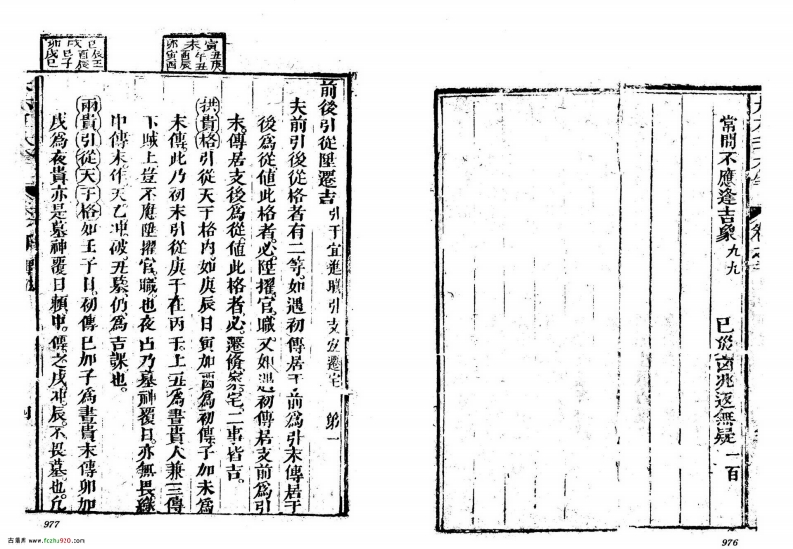 常問不應逢吉象 九九
已災凶兆返無疑 一百
976
前後引從陞遷吉 引干宜進職引支宜遷宅 第一
夫前引後從格者有二等。如遇初傳居干前為引末傳居干
後為從值此格者。必陞擢官職。又如遇初傳居支前為引
末傳居支後為從值此格者。必遷修家宅。二事皆吉。
拱貴格引從天干格內。如庚辰日寅加酉為初傳。子加未為
末傳。此乃初末引從庚干在丙干上丑為晝貴人兼三傳
下賊上豈不應陞擢官職也夜占乃墓神覆日。亦無畏緣
中傳未作天乙冲破。丑墓仍為吉課也。
兩貴引從天干格如壬子日。初傳巳加子為晝貴末傳卯加
戌為夜貴亦是墓神覆日賴中傳之戌冲辰。不畏墓也。凡
寅丑庚
未午丑
酉辰
卯寅酉
巳辰壬
酉辰
戌巳子
卯戌巳
977
古籍库 www.fczhu920.com